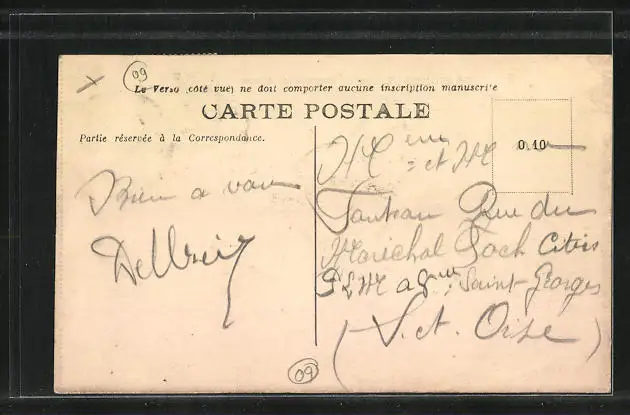 09
Le Verso (côté vue) ne doit comporter aucune inscription manuscrite
CARTE POSTALE
Partie réservée à la Correspondance.
0.10
Bien a vous
et M
Rue du
Maréchal Foch Cités
Saint-Georges
(S. et. Oise)
09